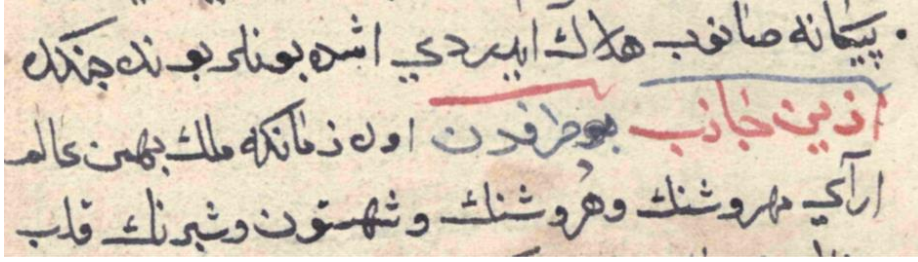 پیمانه صانوب هلاك ایدردي اشته بونلر بونده جنکده
ازین جانب بو طرفدن اول زمانکه ملك بهمن عالم
ارآي مهروشنك وهروشنك وشهستون وشبرنك قلب